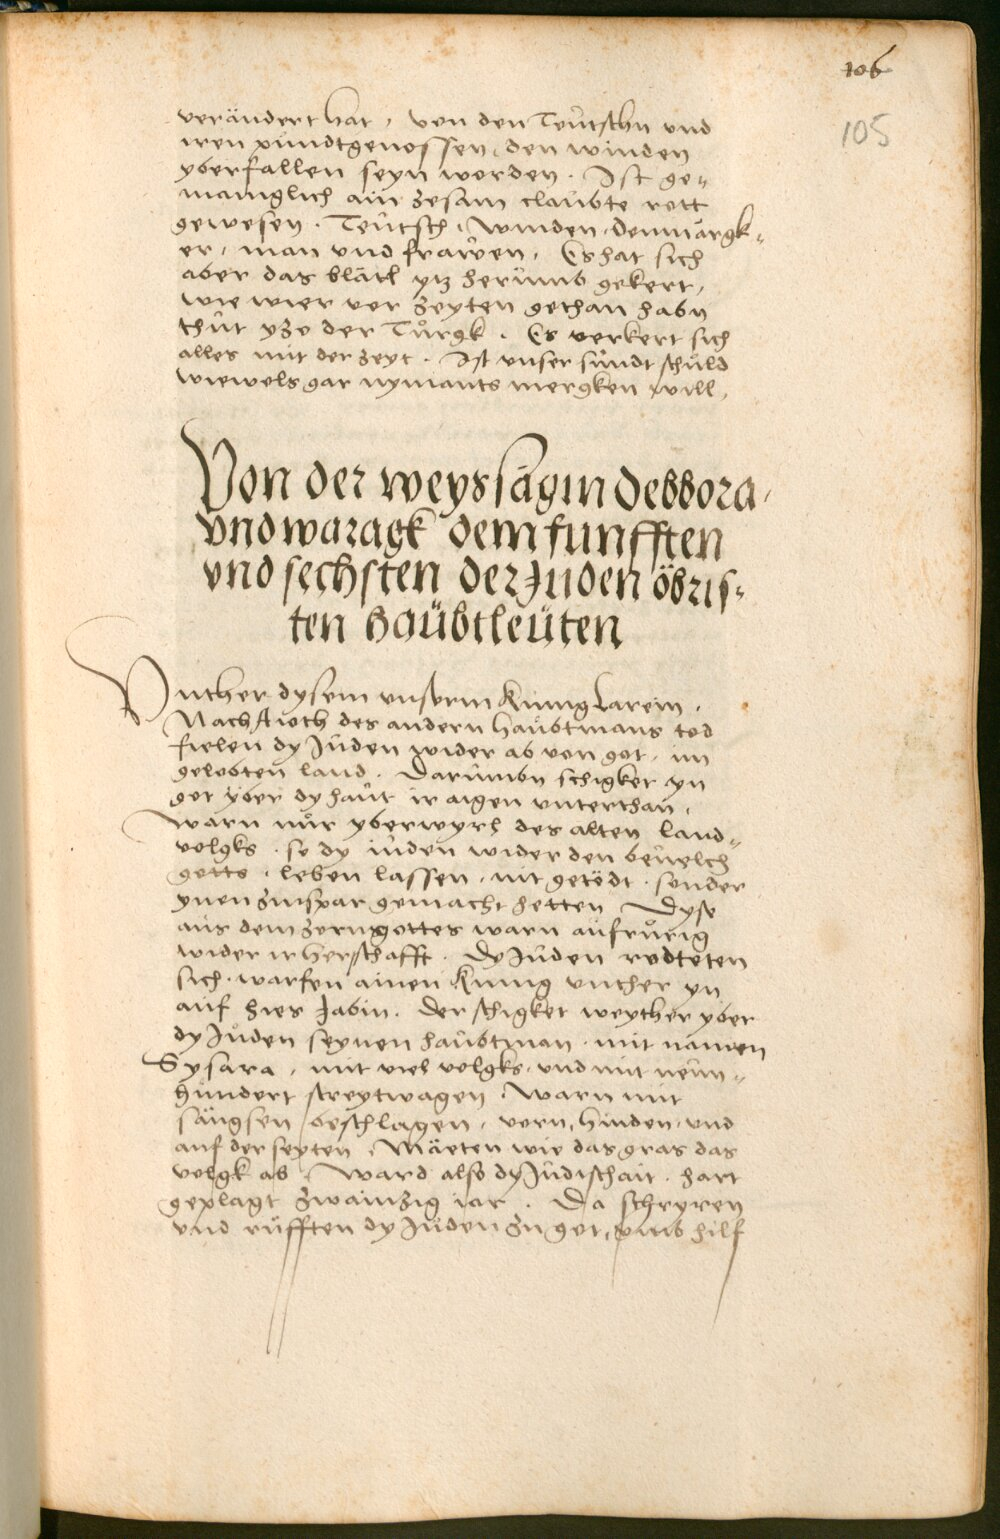 106
105
verändert hat, von den Teütschn und
iren pündtgenossen, den winden
yberfallen seyn worden. Ist ge=
mainglich ain zesam claubte rott
gewesen. Teütsch, Winden, denmärgk=
er, man und frawen, Es hat sich
aber das blätl ytz herümb gekert,
wie wier vor zeyten gethan habn
thüt yzo der Türgk. Es verkert sich
alles mit der zeyt. Ist unser sündt schuld
wiewols gar nymants mergken will,
Von der weyssägin Debbora,
und waragk dem funfften
und sechsten der Juden öbris=
ten haübtleüten
Unther dysem unserm Künig Larein,
Nach Aioth des andern haubtmans tod
fielen dy Jüden wider ab von got, im
gelobten land. Darümbn schigket yn
got yber dy haüt ir aigen unterthan,
Warn nür yberwyrl des alten land=
volgks, so dy iüden wider den bevelch
gotts, leben lassen, nit getödt, sonder
ynen zinspar gemacht hetten. Dyse
aüs dem zorn gottes warn aüfrürig
wider ir herschafft. Dy Jüden rodteten
sich, warfen ainen Künig unther yn
aüf hies Jabin. Der schigket weyther yber
dy Jüden seynen haübtman, mit namen
Sysara, mit viel volgks, und mit neün=
hündert streytwagen, Warn mit
sängsen beschlagen, vorn, hinden, und
auf der seyten, Mäeten wie das gras das
volgk ab, Ward also dy Jüdischait, hart
geplagt zwainzig iar. Da schryren
und rüfften dy Jüden zu got, umb hilf